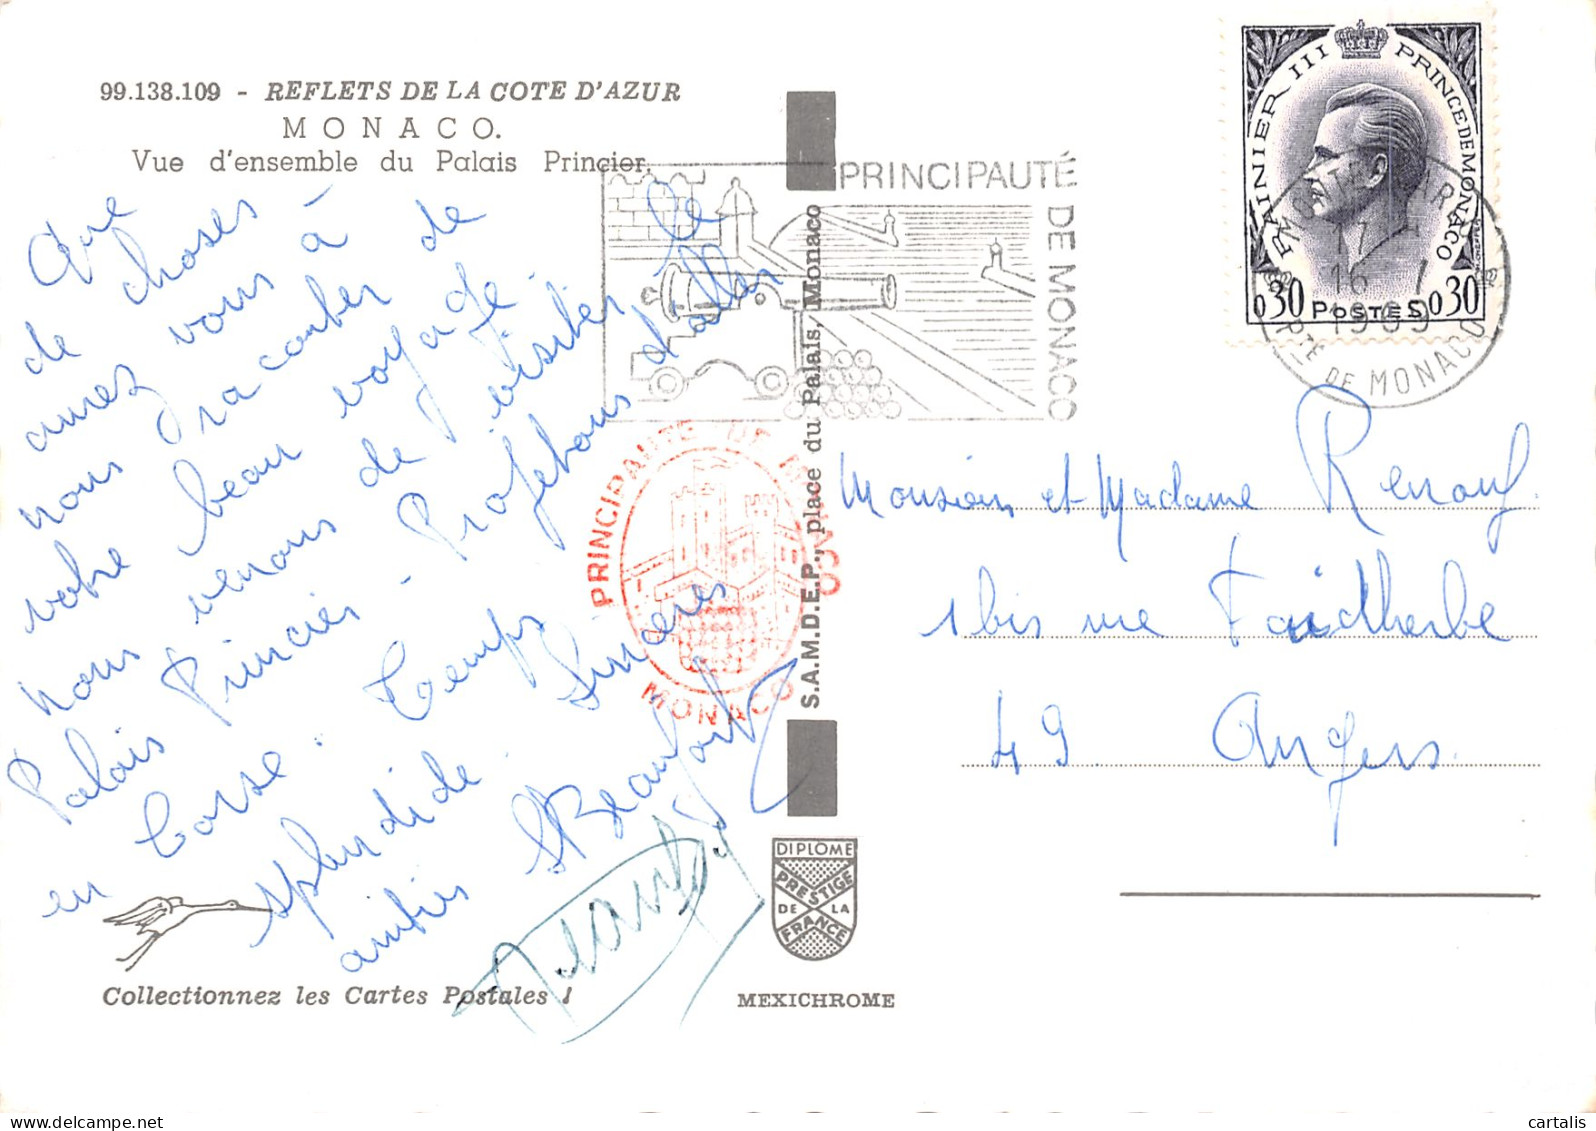 99.138.109 - REFLETS DE LA COTE D'AZUR
MONACO.
Vue d'ensemble du Palais Princier
Que
de choses
aurez vous à
nous raconter de
votre beau voyage
nous venons de visiter le
Palais Princier - Profitons d'aller
en Corse. Temps
splendide. Sincères
amitiés Beaufort
Collectionnez les Cartes Postales !
PRINCIPAUTÉ
DE MONACO
PRINCIPAUTE DE MONACO
MONACO
S.A.M.D.E.P., place du Palais, Monaco
DIPLOME
PRESTIGE
DE LA
FRANCE
MEXICHROME
RAINIER III PRINCE DE MONACO
0,30 POSTES 0,30
17 H
16 - 1
1969
PTÉ DE MONACO
Monsieur et Madame Renouf
1bis rue Faidherbe
49 Angers.
cartalis